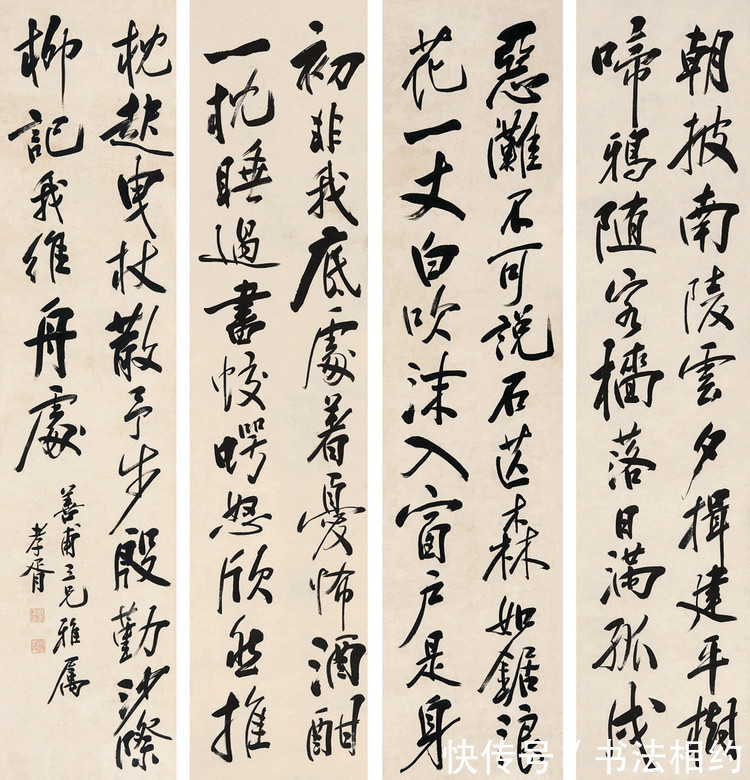 朝披南陵雲夕揖建平樹
啼鴉随客檣落日滿孤戍
惡灘不可説石芒森如鋸浪
花一丈白吹沫入窗户是身
初非我底處着憂怖酒酣
一枕睡過盡蛟𧍞怒欣然推
枕起曳杖散予步殷勤沙際
柳記我維舟處
善甫三兄雅屬
孝胥
快传号 / 书法相约